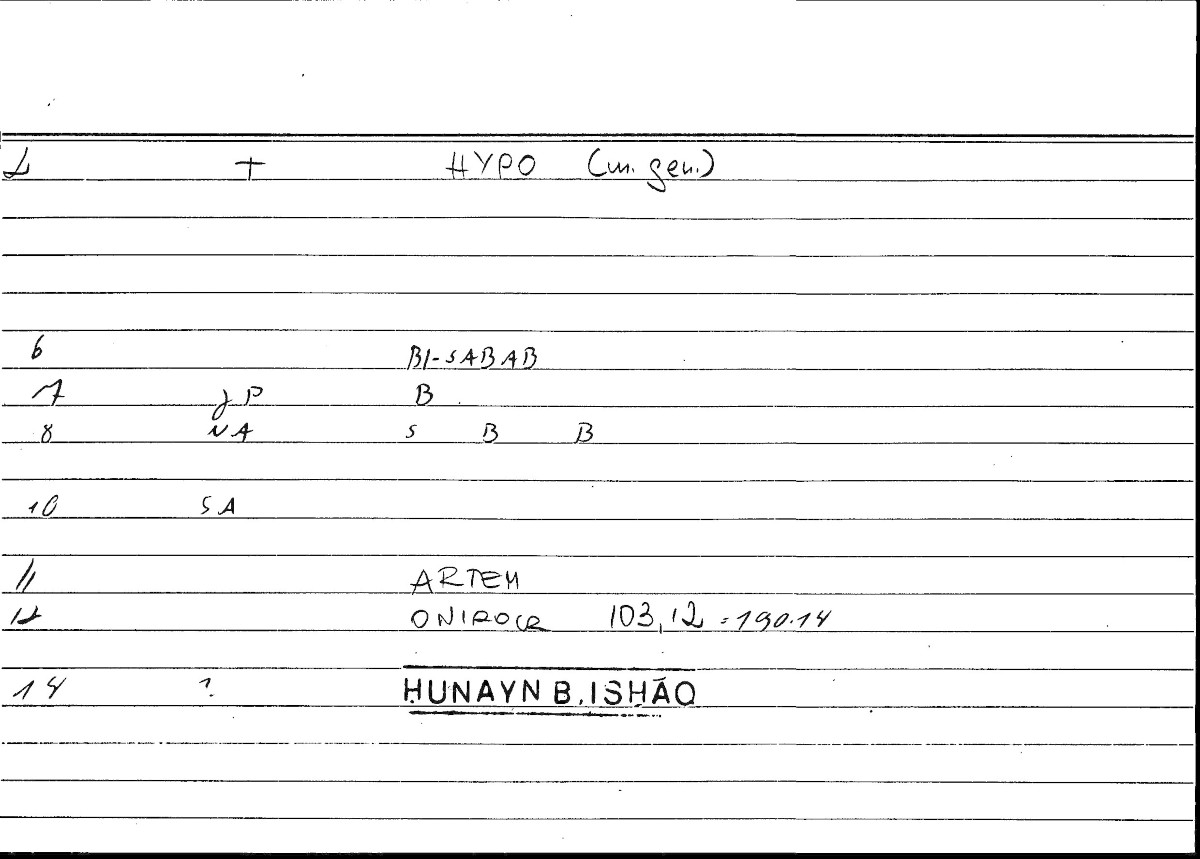 2 + HYPO (m. gen.)
6 BI-SABAB
7 gP B
8 NA S B B
10 SA
11 ARTEM
12 ONIROCR 103,12 = 190.14
14 ? ḤUNAYN B. ISḤĀQ